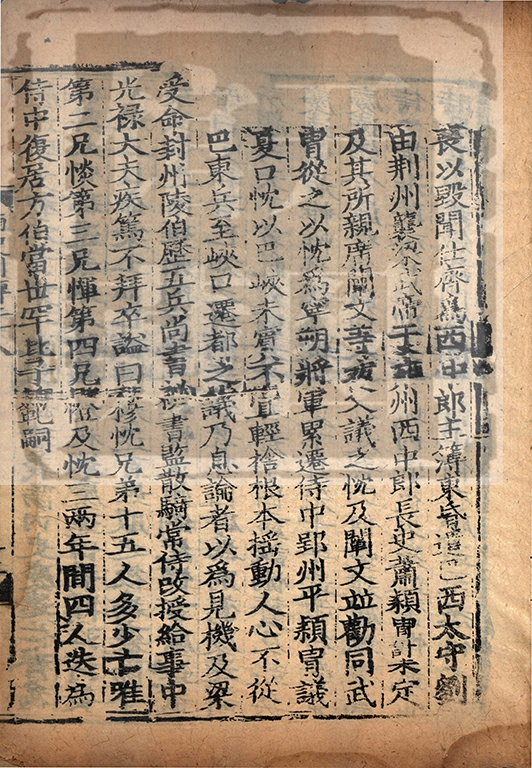 喪以毀聞仕齊爲西中郎主簿東昏遣巴西太守劉
由荆州襲梁武帝于雍州西中郎長史蕭頴冑計未定
及其所親席闡文等夜入議之忱及闡文並勸同武
冑從之以忱爲寧朔將軍累遷侍中郢州平頴冑議
夏口忱以巴峽未賓不宜輕捨根本揺動人心不從
巴東兵至峽口遷都之議乃息論者以爲見機及梁
受命封州陵伯歷五兵尚書祕書監散騎常侍改授給事中
光禄大夫疾篤不拜卒謚曰穆忱兄弟十五人多少亡唯
第二兄惔第三兄惲第四兄憕及忱三兩年間四人迭爲
侍中復居方伯當世罕比子範嗣